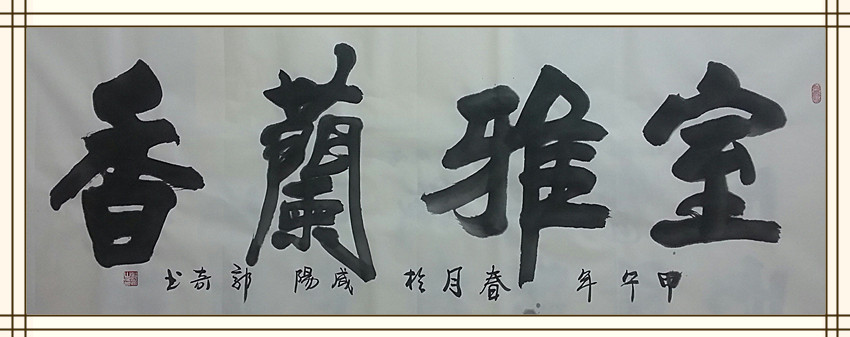 室雅蘭香
甲午年春月於咸陽郭奇书